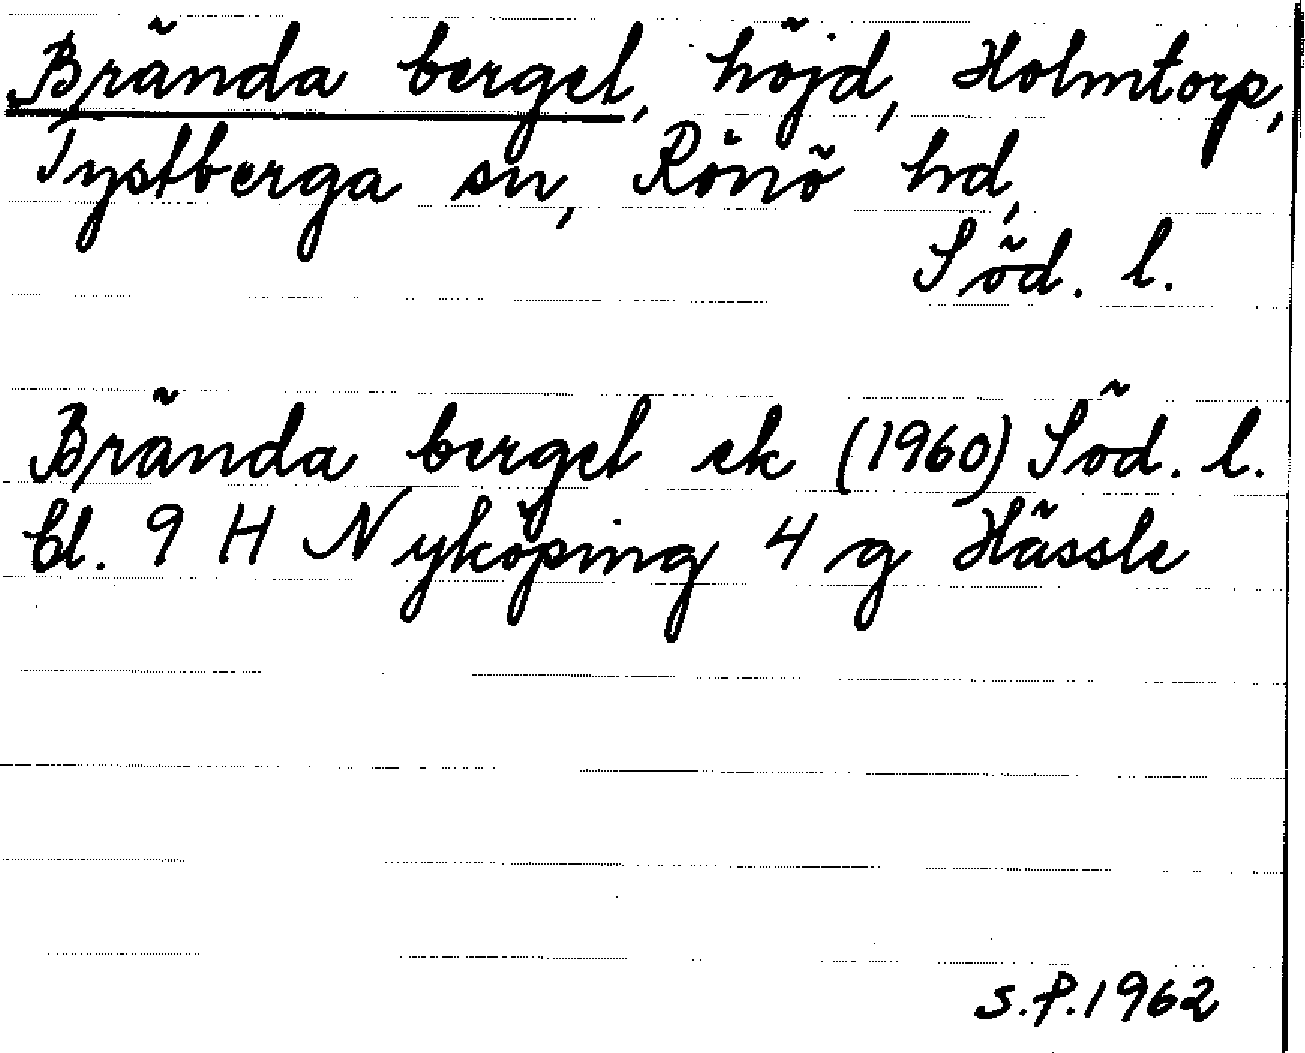 Brända berget, höjd, Holmtorp,
Tystberga sn, Rönö hd,
Söd. l.
Brända berget ek (1960) Söd. l.
bl. 9 H Nyköping 4 g Hässle
S.P.1962